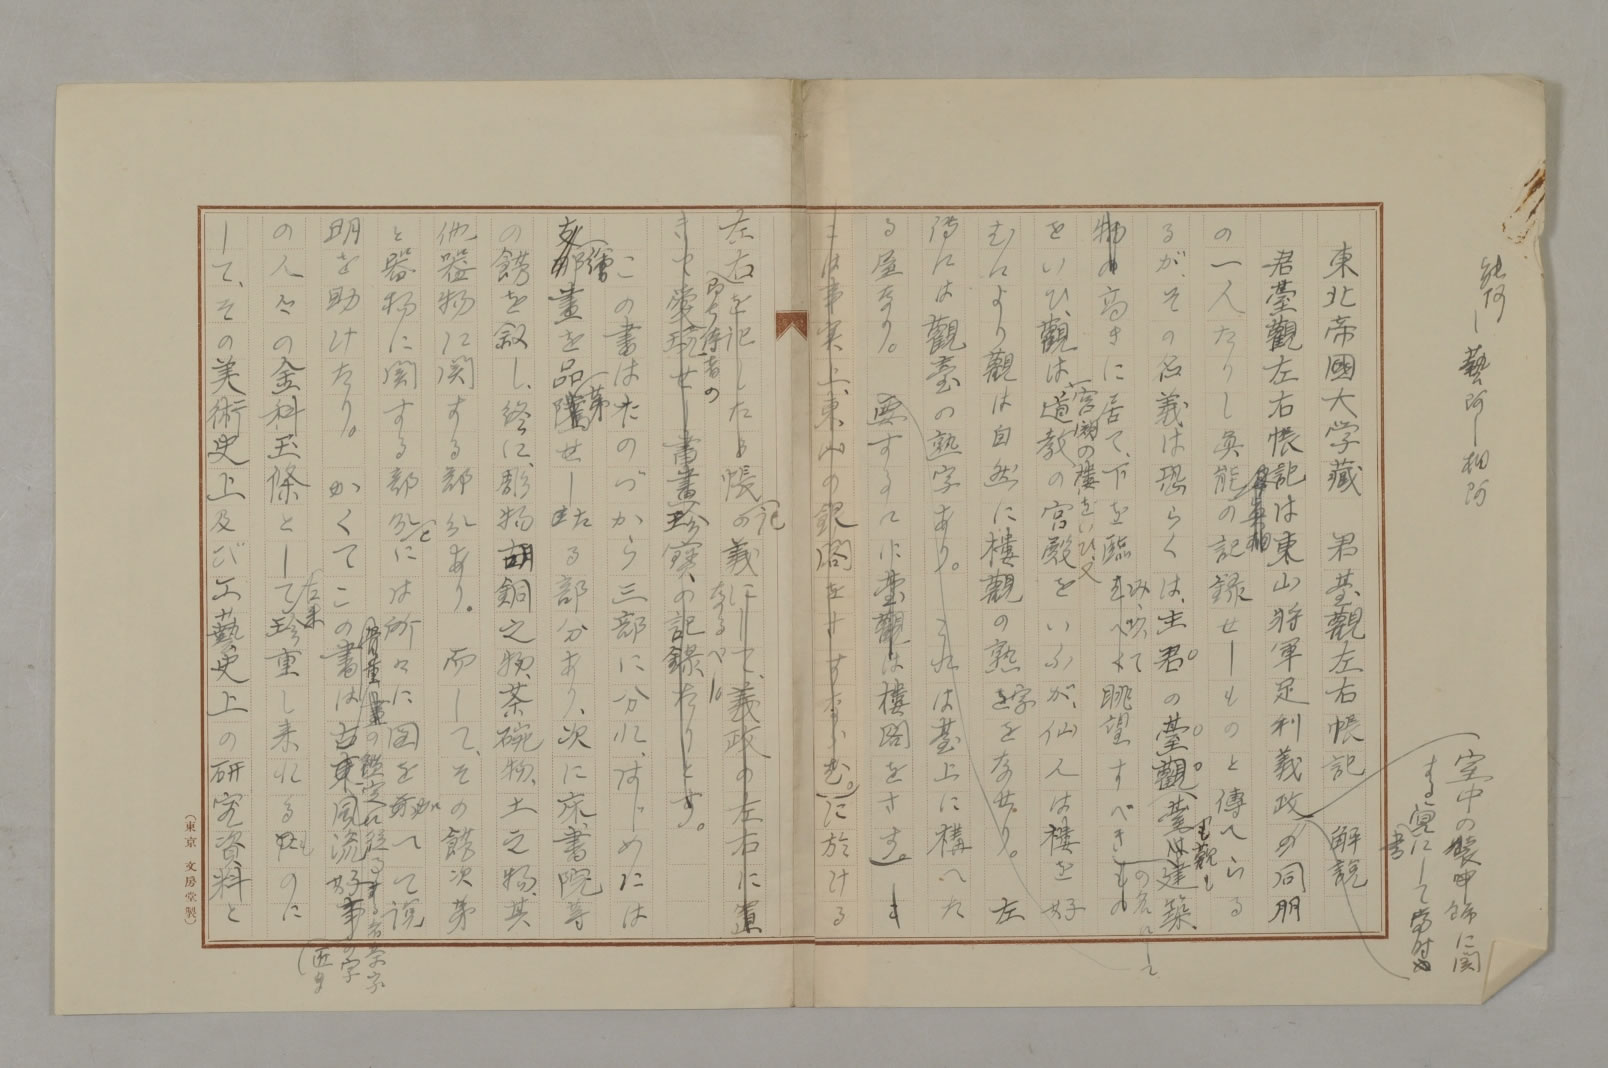 能阿ー藝阿ー相阿
室中の装飾に関
する
書にして当時
東北帝國大学藏 君臺觀左右帳記 解説
君臺觀左右帳記は東山将軍足利義政の同朋
の一人たりし真能の記録せしものと傳へらる
るが、その名義は恐らくは、主君の臺觀
物の高きに居て、下を臨みて眺望すべきもの
をいひ、觀は道教の宮殿をいふが、仙人は樓を好
宮闕の樓をいひ、又
むにより觀は自然に樓觀の熟字をなせり。左
傳には觀臺の熟字あり。これは臺上に構へた
る屋なり。要するに臺觀は樓閣をさす。
は事実上、東山の銀閣をさすならむ。に於ける
左右を記したる帳の義にして、義政の左右に置
記
なるべし
即ち侍者の
きて愛玩せし書畫珍寳の記録なりとす。
この書はおのづから三部に分れ、はじめには
支那畫を品隲せし
繪
第
る部分あり、次に床、書院等
の餝を叙し、終に、彫物、胡銅之物、茶碗物、土之物、其
他器物に関する部分あり。而して、その餝次第
と器物に関する部分には所々に図を加へて説
明を助けたり。かくてこの書は古来風流好事
の鑑定に
の人々の金科玉條として珍重し来れるものに
古来
して、その美術史上及び工藝史上の研究資料と
(東京 文房堂製)